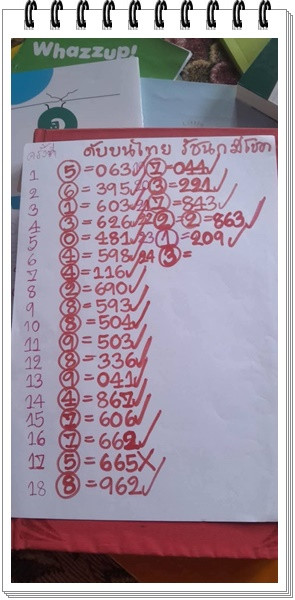 Whazzup!
ครั้งที่ ดับบนไทย รัชนก มีโชค
1 ⑤=063✓ ⑦=044✓
2 ⑥=395✓ 20 ③=221✓
3 ①=603✓ 21 ⑦=843✓
4 ③=626✓ 22 ②=②=863✓
5 ⓪=481✓ 23 ①=209✓
6 ④=598✓ 24 ③=
7 ④=116✓
8 =690✓
9 ⑧=593✓
10 ⑧=504✓
11 ⑨=503✓
12 ⑧=336✓
13 ⑨=041✓
14 ④=867✓
15 =606✓
16 ⑦=662✓
17 ⑤=665X
18 ⑧=962✓